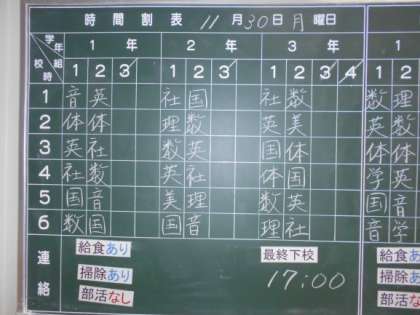 時間割表 11月30日月曜日
学年 1年 2年 3年 1
校時 組 1 2 3 1 2 3 1 2 3 4 1 2
1 音 英 社 国 社 数 数 理
2 体 体 理 数 英 美 英 数
3 英 社 数 英 国 体 体 体
4 社 数 英 社 体 国 学 英
5 国 音 美 理 数 英 国 音
6 数 国 国 音 理 社 音 学
連絡
給食あり 最終下校 給食あ
掃除あり 17:00 掃除あ
部活なし 部活な